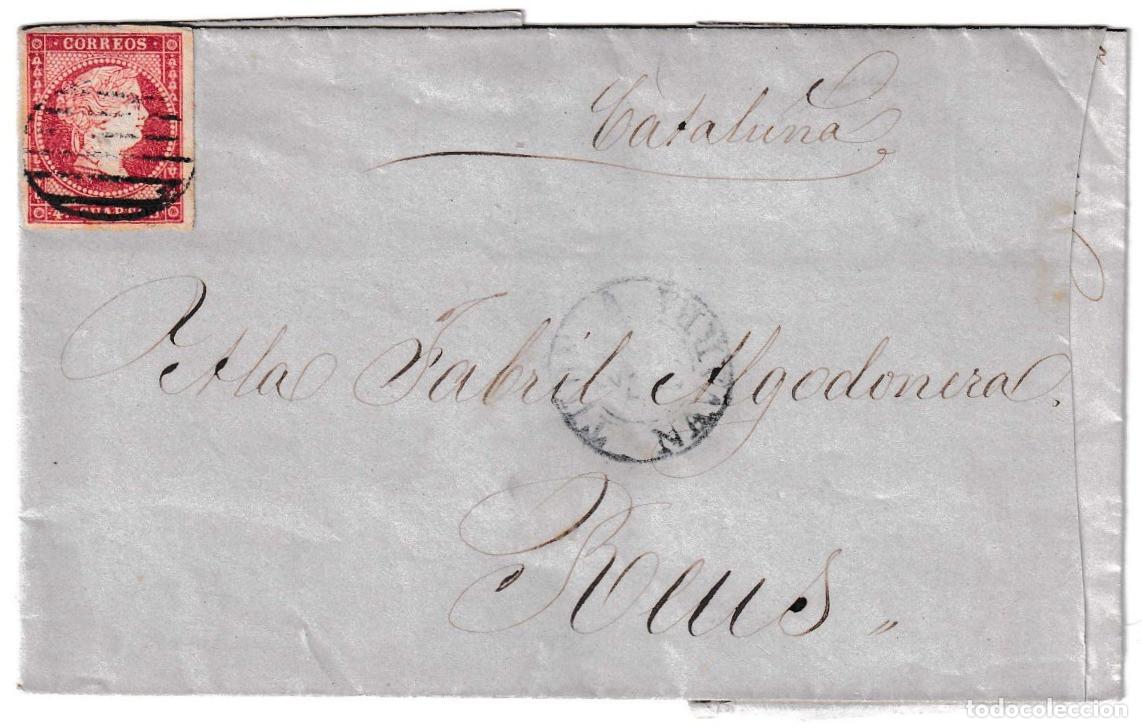 CORREOS
4 CUARTOS
Cataluña
A la Fabril Algodonera
Reus
todocoleccion